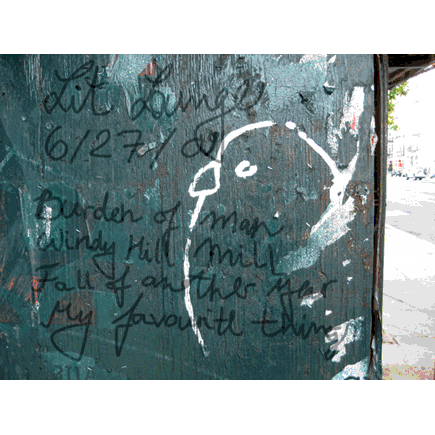 Lit Lounge
6/27/
Burden of man
Windy Hill Mill
Fall of another year
My favourite thing